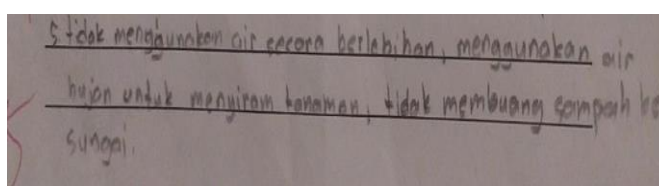 5 tidak menggunakan air secara berlebihan, menggunakan air
hujan untuk menyiram tanaman, tidak membuang sampah ke
sungai.